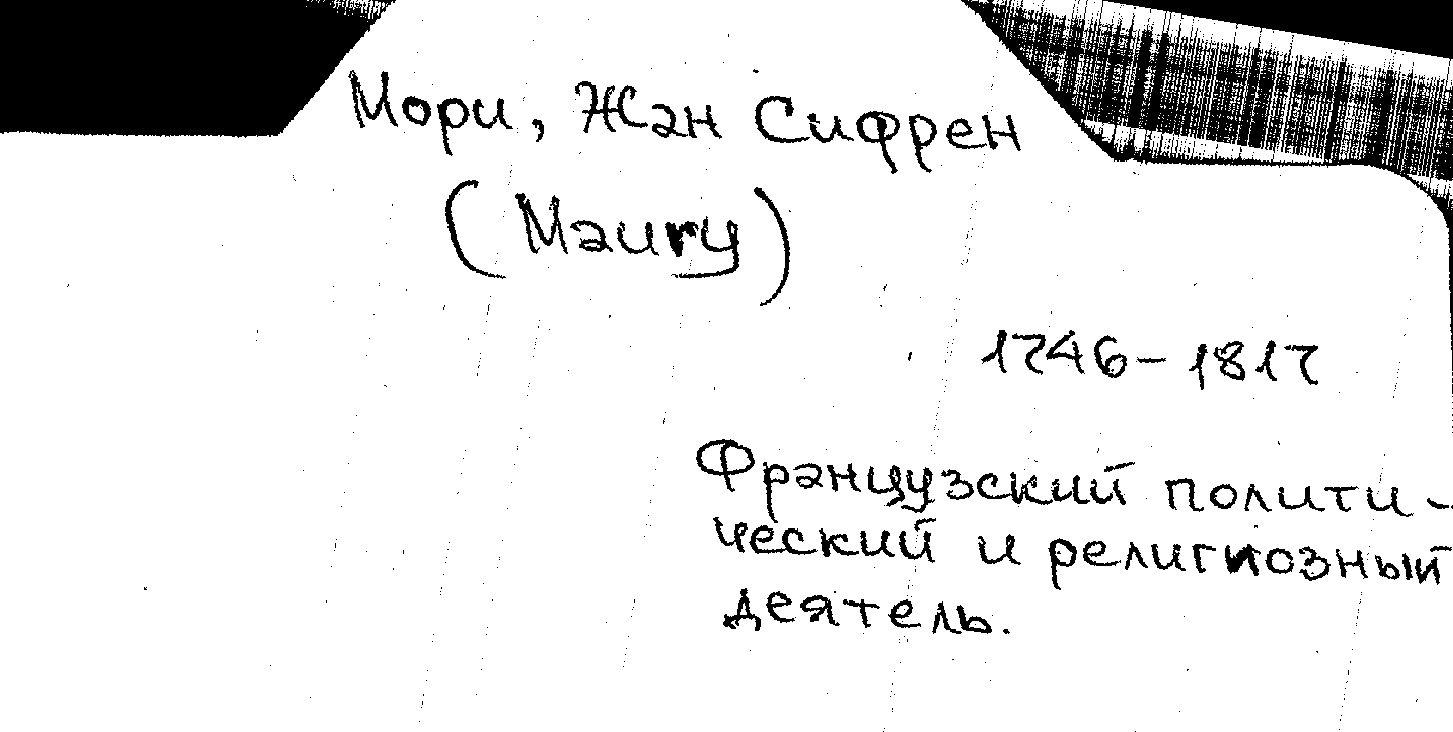 Мори, Жан Сифрен
(Maury)
1746-1817
Французский полити-
ческий и религиозный
деятель.